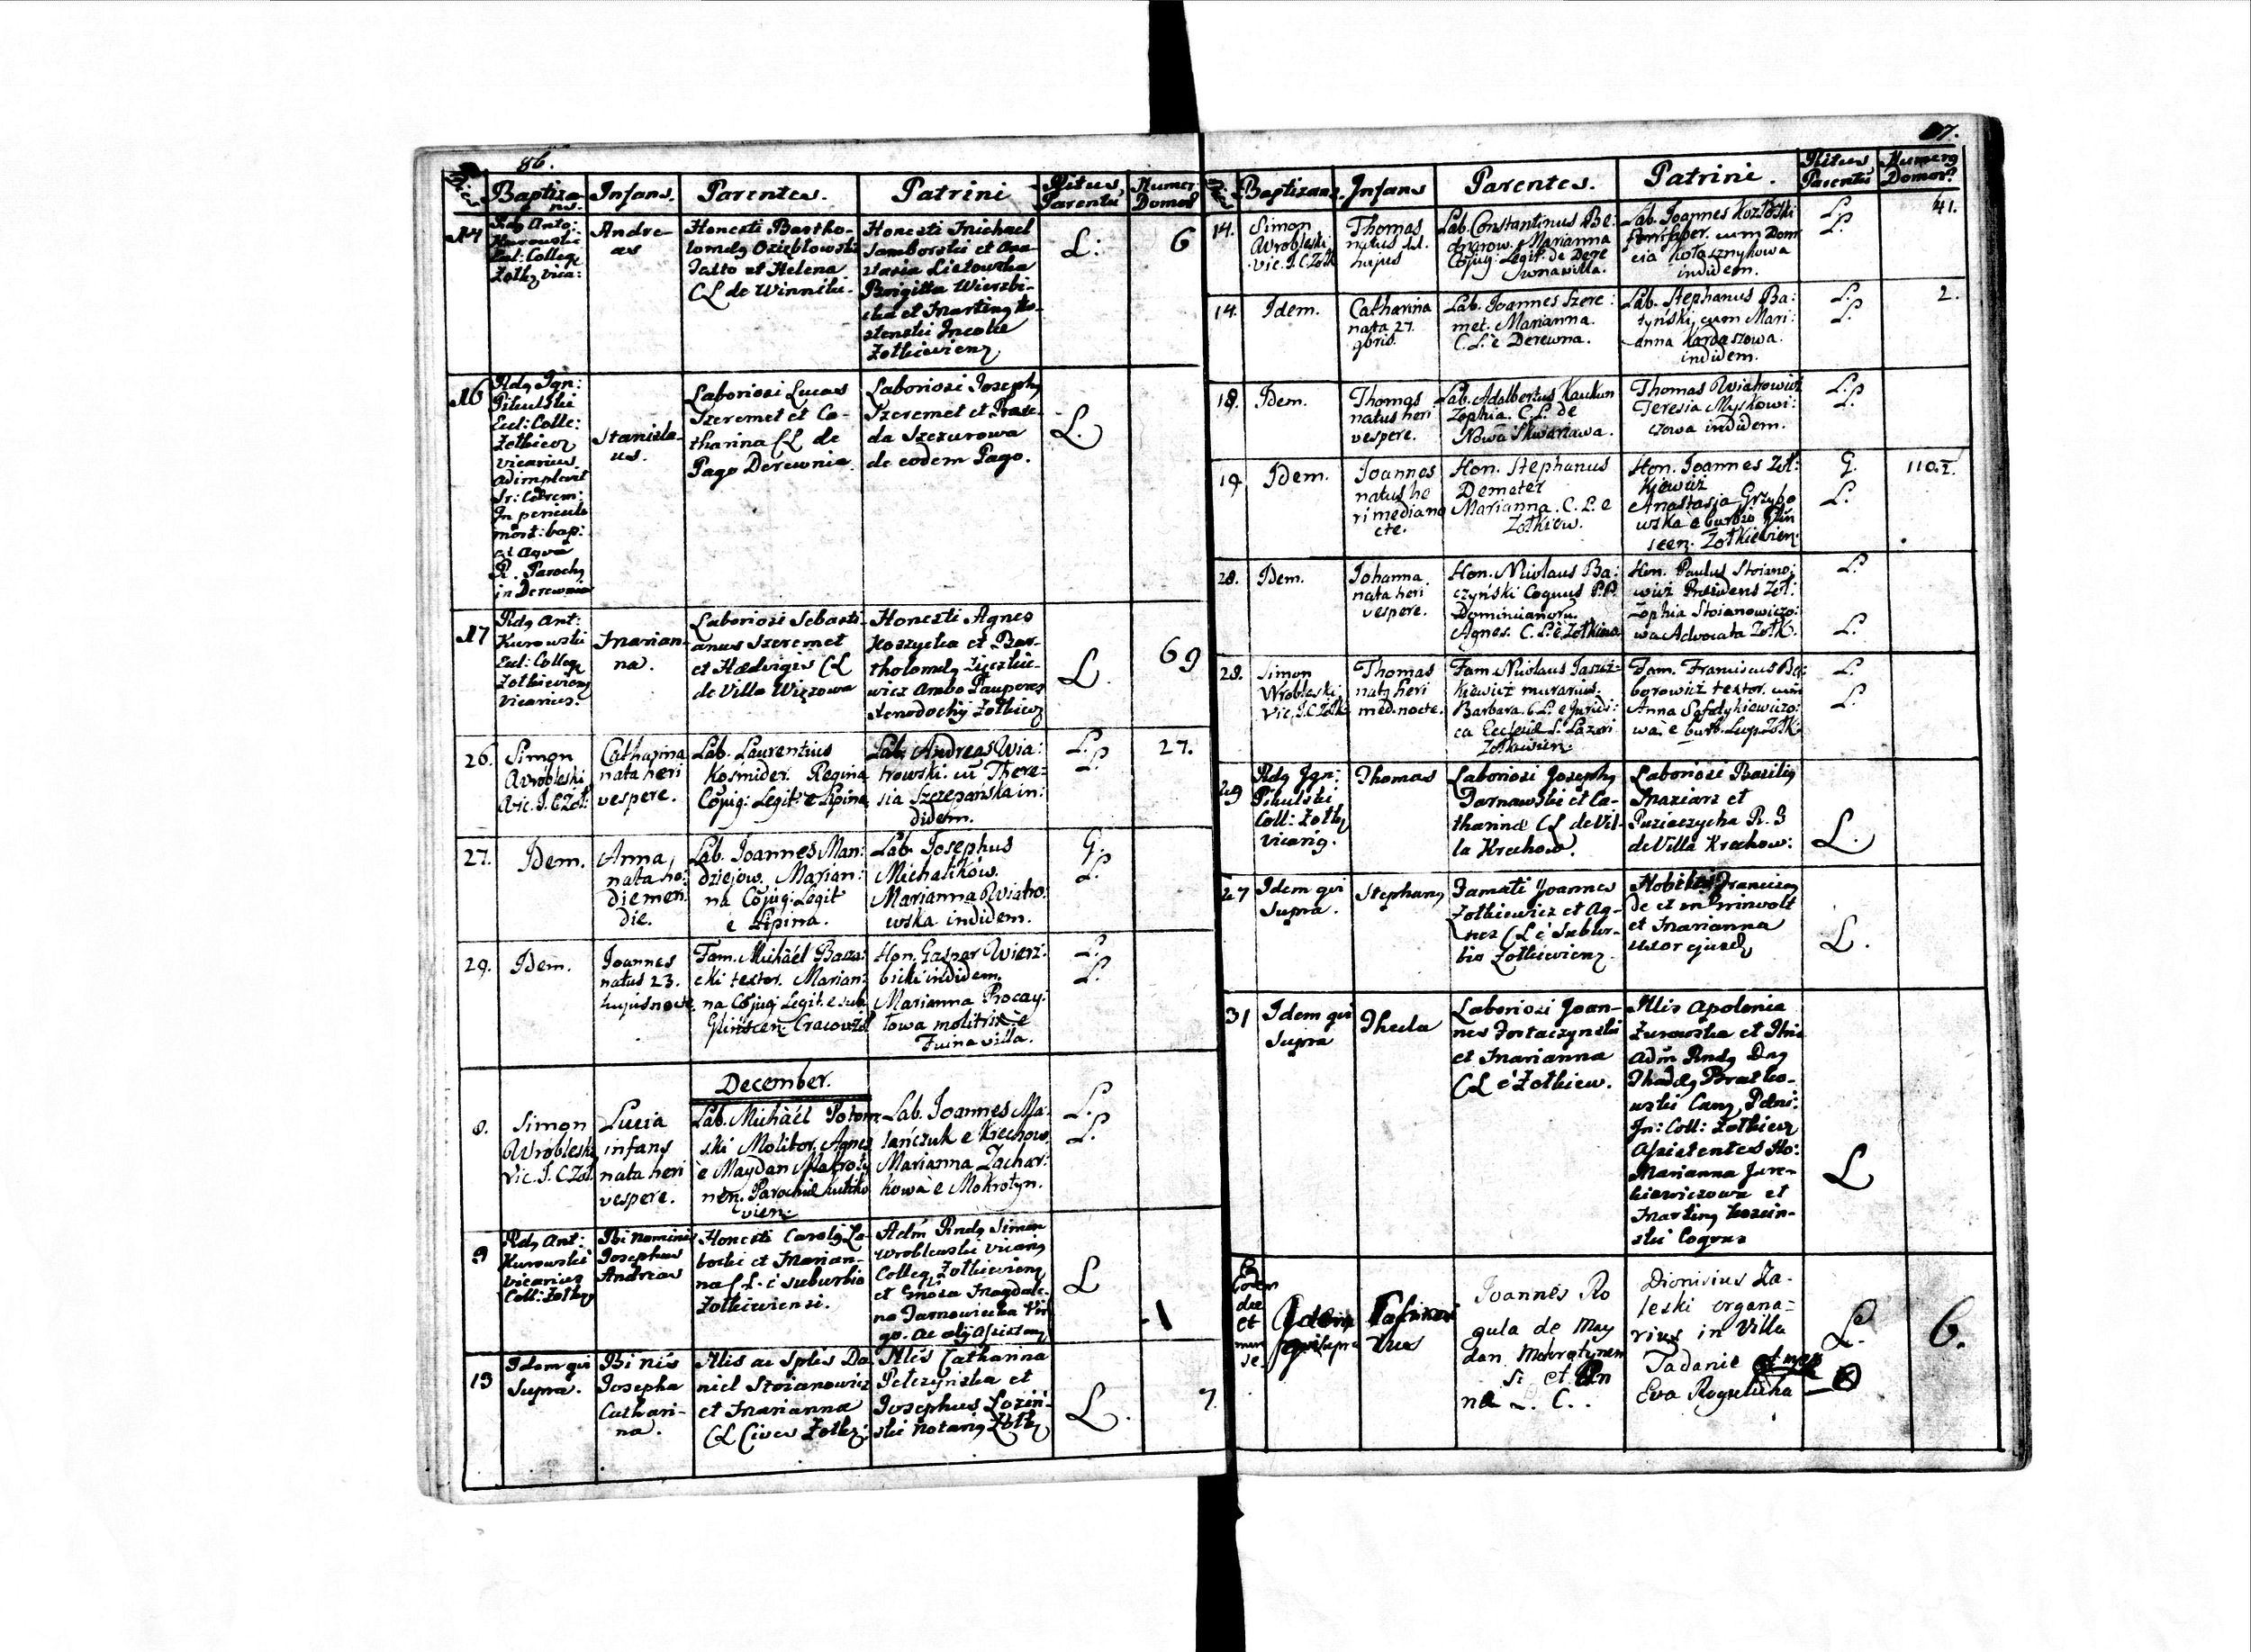 86.
Dies
Baptizans.
Infans.
Parentes.
Patrini
Ritus Parentũ
Numer Domor
14
Rdg Anto:
Kurowski
Ecl: Colleg
Zotkg vica:
Andre-
as
Honesti Bartho-
lomeg Ozizbłowski
et Helena
CL de Winniki.
Honesti Michael
Jamborski et Ana
stasia Lisowska
Brigitta Wierzbi-
cka et Marting Ko-
stenski Incolæ
Zołkiewieng
L:
6
16
Rdg Ign:
Pikulski
Ecl: Colle:
Zotkieng
vicarius
adimplevit
Sr: Cærem:
In periculo
mort: bap:
est aqua
R. Parochg
in Derewnia
Stanisla-
us.
Laboriosi Lucas
Szeremet et Ca-
tharina CL de
Pago Derewnia.
Laboriosi Josephg
Szeremet et Prase-
da Szczurowa
de eodem Pago.
L.
17
Rdg Ant:
Kurowski
Ecl: Colleg
Zotkievieng
vicarius.
Marian-
na.
Laboriosi Sebasti-
anus Szeremet
et Hædvigis CL
de Villa Wiązowa
Honesti Agnes
Koszycka et Bar-
tholomeg Zyczkie-
wicz Ambo Pauperes
Xenodochij Zołkiewg
L.
69
26.
Simon
Wrobleski
Vic. I. C Żoł:
Catharina
nata heri
vespere.
Lab. Laurentius
Kośmider. Regina
Cojug: Legit: è Lipina
Lab. Andreas Wia:
trowski. cũ There=
sia Szczepańska in:
didem.
L.
L.
27.
27.
Idem.
Anna,
nata ho:
die meri
die.
Lab. Joannes Man:
dziejow. Marian:
na Cojug: Legit
è Lipina.
Lab. Josephus
Michalików.
Marianna Wiatro:
wska indidem.
G.
L.
29.
Idem.
Joannes
natus 23.
hujus nocte.
Fam. Michaël Basza:
cki textor. Marian:
na Cojug: Legit. e sub
Glińscen: Cracoviẽ
Hon. Gaspar Wierz:
bicki indidem.
Marianna Procay:
łowa molitrix è
Fuina villa.
L.
L.
December.
8.
Simon
Wrobleski
Vic. I. C Żoł.
Lucia
infans
nata heri
vespere.
Lab. Michaël Potom
ski Molitor, Agnes
è Maydan Mokroty
nen. Parochiæ Kuliko
vien:
Lab. Joannes Ma:
lańczuk e Kiechow.
Marianna Zachar:
kowa è Mokrotyn.
L.
L.
9
Rdg Ant:
Kurowski
vicarius
Coll: Zotkg
Bi nominis
Josephus
Andreas
Honesti Carolg La-
bocki et Marian-
na CL. è suburbio
Zołkiewiensi.
Adm Rndg Simon
Wroblewski Vicarig
Colleg Zołkiewieng
et Gnosa Magdale-
na Tarnowiecka Vir
go. ac alij Assistang
L
1
13
Idem qui
Supra.
Bi nis
Josepha
Cathari-
na.
Nlis ac Splis Da
niel Stoianowicz
et Marianna
CL Cives Zołkg:
Nlis Catharina
Pełczyńska et
Josephus Łoziń-
ski Notarig Zołkg
L.
7.
87.
Baptizans.
Infans
Parentes.
Patrini.
Ritus Parentũ
Numerg Domor:
14.
Simon
Wrobleski
Vic. I. C Żołk
Thomas
natus 11.
hujus
Lab. Constantinus Be:
dnarow. Marianna
Cojug: Legit: de Dere
wna villa.
Lab. Joannes Kozłoski
cum Dom
cia Kołasznykowa
indidem.
L.
L.
41.
14.
Idem.
Catharina
nata 27.
9bris.
Lab. Joannes Szere:
met. Marianna.
C. L. è Derewna.
Lab. Stephanus Ba:
tyński, cum Mari:
anna Kardaszowa.
indidem.
L.
L.
2.
18.
Idem.
Thomas
natus heri
vespere.
Lab. Adalbertus Kaukun
Zophia. C. L. de
Nowa Skwariawa.
Thomas Wiatrowicz
Teresia Myskowi:
czowa indidem.
L.
L.
19.
Idem.
Joannes
natus he
ri media no
cte.
Hon. Stephanus
Demeter
Marianna. C. L. e
Zołkiew.
Hon. Joannes Żoł:
kiewicz
Anastasia Grzybo
wska e burbio Glin
scen: Żołkiewien:
G.
L.
110.
28.
Idem.
Johanna
nata heri
vespere.
Hon. Nicolaus Ba:
czyński Coquus P.P.
Dominicanorũ.
Agnes. C. L. è Zołkiew
Hon. Paulus Stoiano:
wicz Præsidens Żoł:
Zophia Stoianowiczo:
wa Advocata Żołk.
L.
L.
28.
Simon
Wrobleski
Vic. I. C Żołk
Thomas
natg heri
med: nocte.
Fam. Nicolaus Jasiń=
kiewicz murarius.
Barbara. C. L. e juridi:
ca Ecclesiæ S. Lazari
Zołkiewien:
Fam. Franciscus Ba:
borowicz textor. cum
Anna Safatykiewiczo:
wa. è burb. Lwp. Żołk:
L.
L.
29
Rdg Ign:
Pikulski
Coll: Zotkg
vicarig.
Thomas
Laboriosi Josephg
Tarnawski et Ca-
tharina CL de Vil-
la Krechow.
Laboriosi Basilig
Maziarz et
Puziaczycha R. G
de Villa Krechow:
L.
27
Idem qui
Supra.
Stephang
Famati Joannes
Zotkiewicz et Ag-
nes CL è Subur-
bio Zołkiewieng.
Nobiles Franciscg
de et in
et Marianna
uxor ejusdg
L.
31
Idem qui
Supra
Thecla
Laboriosi Joan-
nes Fortaczynski
et Marianna
CL è Zołkiew.
Nlis Apolonia
Zurowska et
Adm Rndg Dng
Thadeg Bratko-
wski Cang Pœni:
In: Coll: Zołkiewg
Assistentes Ho:
Marianna Jure-
kiewiczowa et
Marting Kozein-
ski Coquus
L
Eodem
die
et
men
se.
Idem
qui supra
Joannes Ro
gula de May
dan Mokrotynen
si et An
na L. C..
Dionisius Za-
leski organa=
rius in Villa
Zadanie
Eva Rogulicha
L.
6.